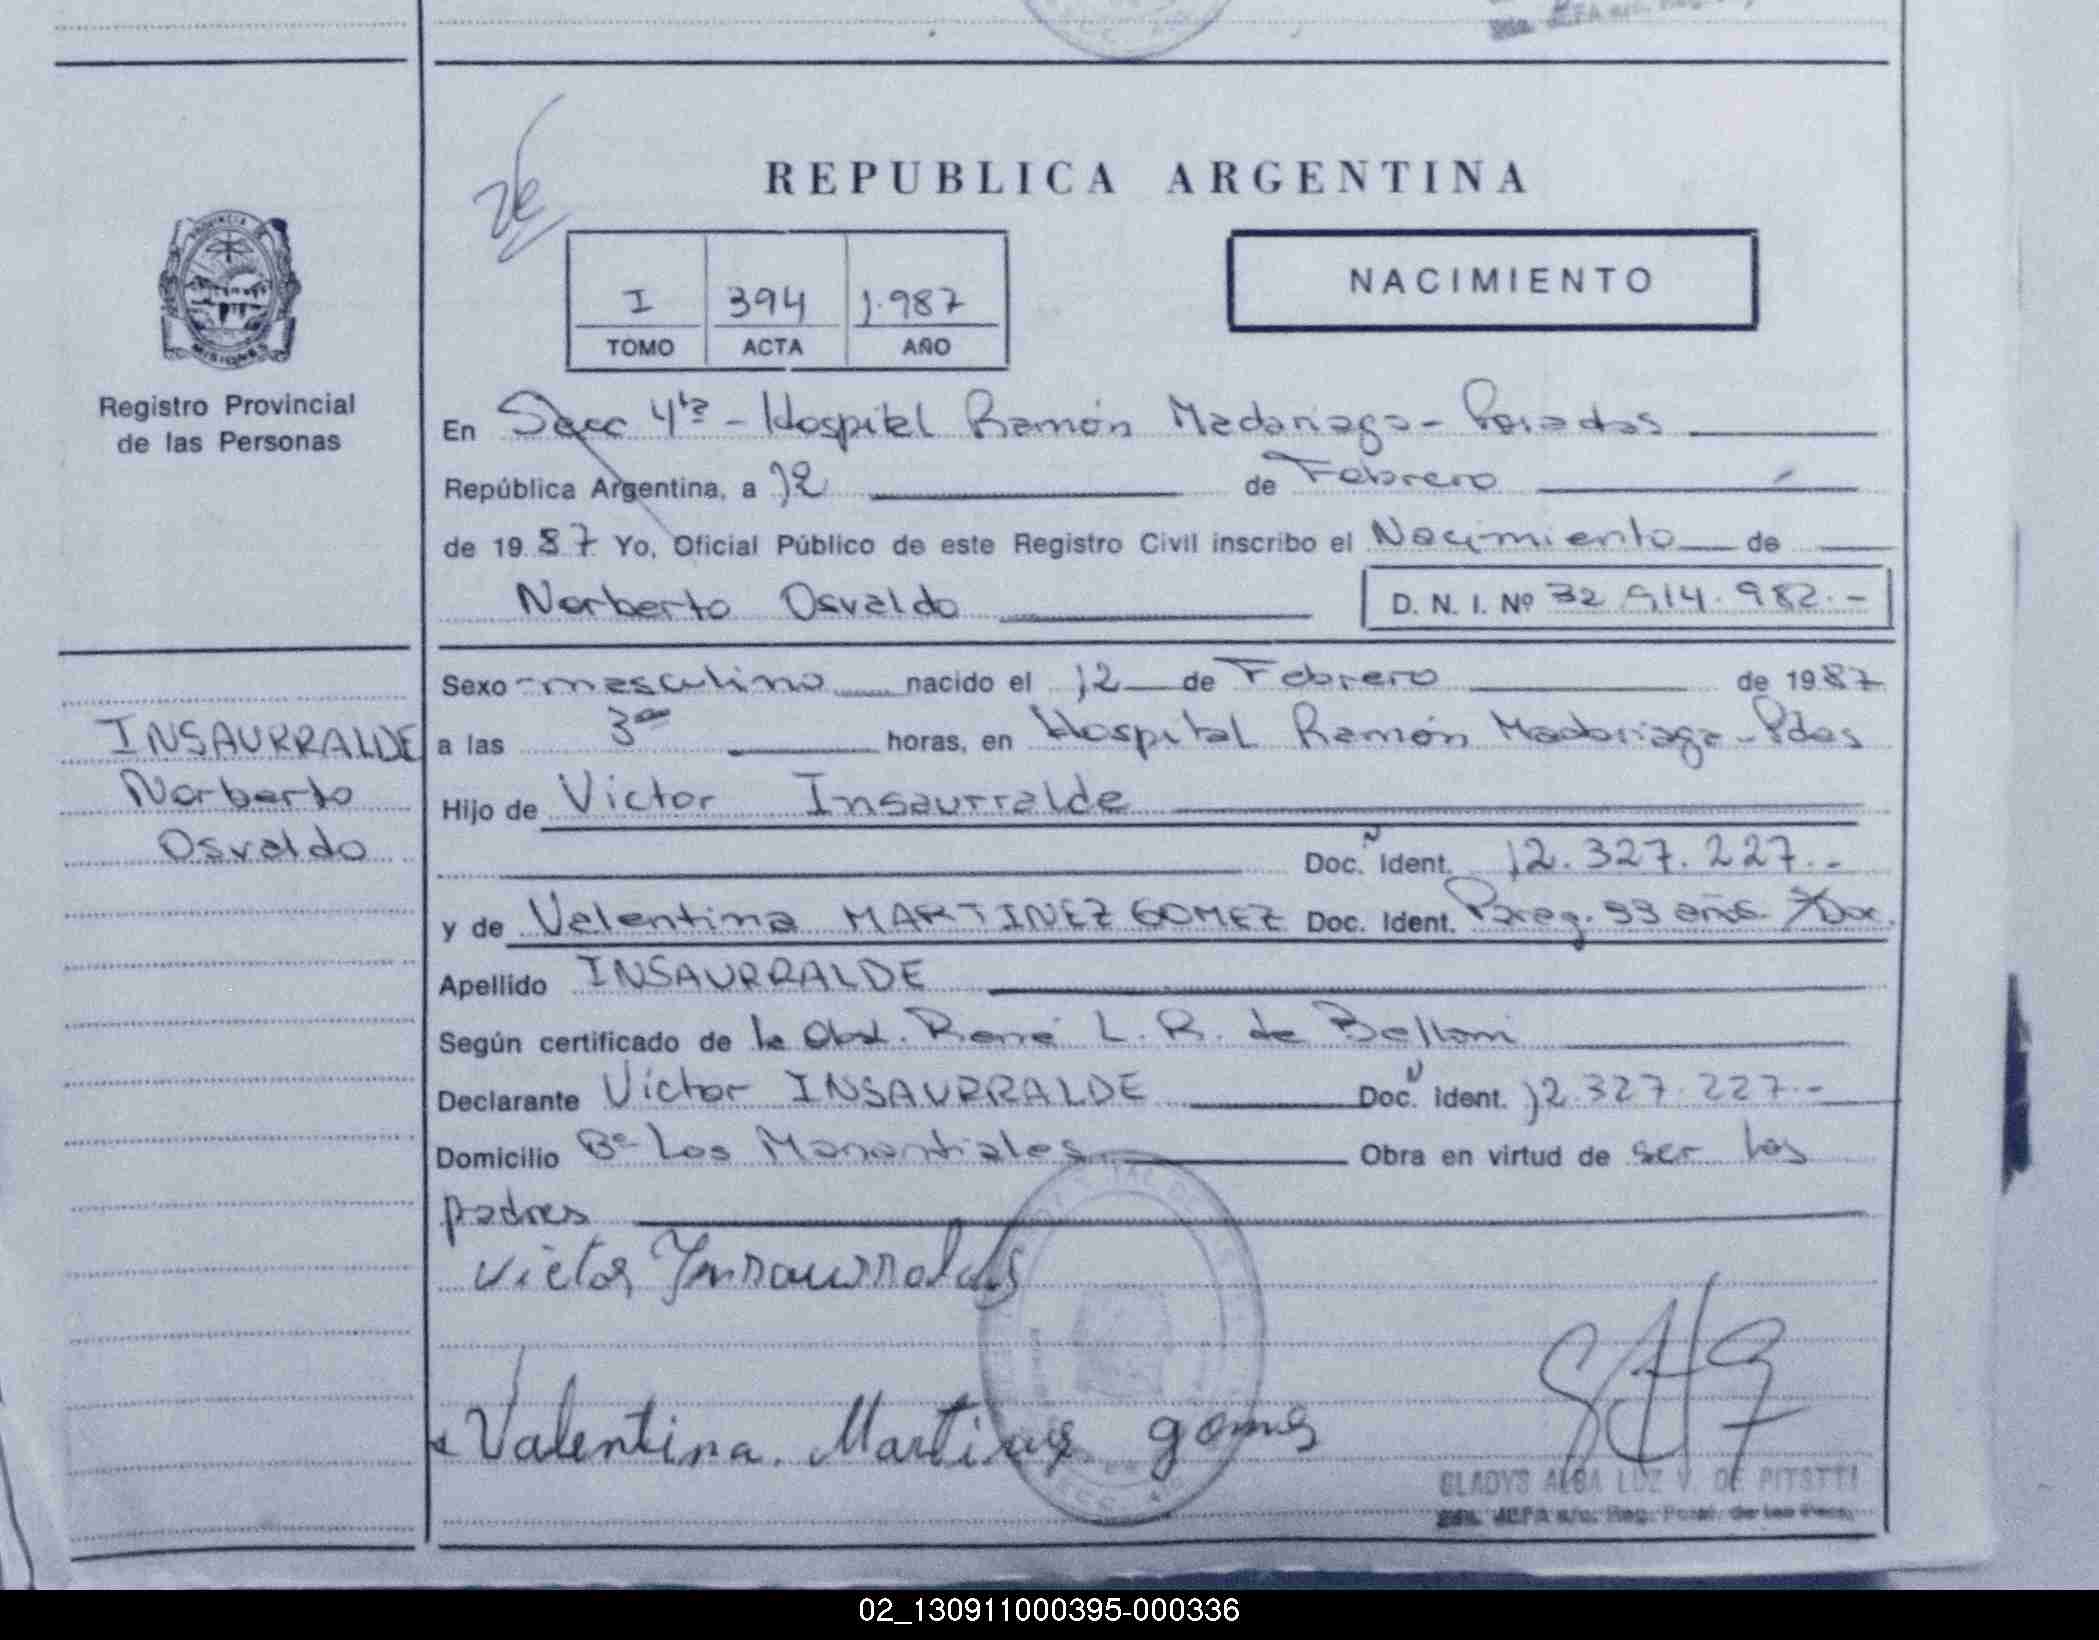 REPUBLICA ARGENTINA
I 394 1.987
TOMO ACTA AÑO
NACIMIENTO
PROVINCIA DE
MISIONES
Registro Provincial
de las Personas
En Secc 4ta - Hospital Ramón Madariaga - Posadas
República Argentina, a 12 de Febrero
de 1987 Yo, Oficial Público de este Registro Civil inscribo el Nacimiento de
Norberto Osvaldo D. N. I. Nº 32.914.982.-
Sexo masculino nacido el 12 de Febrero de 1987
INSAURRALDE
Norberto
Osvaldo
a las 3 horas, en Hospital Ramón Madariaga - Pdas
Hijo de Victor Insaurralde
Doc. Ident. 12.327.227.-
y de Valentina MARTINEZ GOMEZ Doc. Ident. Parag. 33 años
Apellido INSAURRALDE
Según certificado de la Obst. René L. R. de Belloni
Declarante Victor INSAURRALDE Doc. Ident. 12.327.227.-
Domicilio Bº Los Manantiales Obra en virtud de ser los
padres
Victor Insaurralde
Valentina. Martines gomes
GLADYS ALBA LUZ V. DE
JEFA a/c. Reg. de las Pers.
02_130911000395-000336